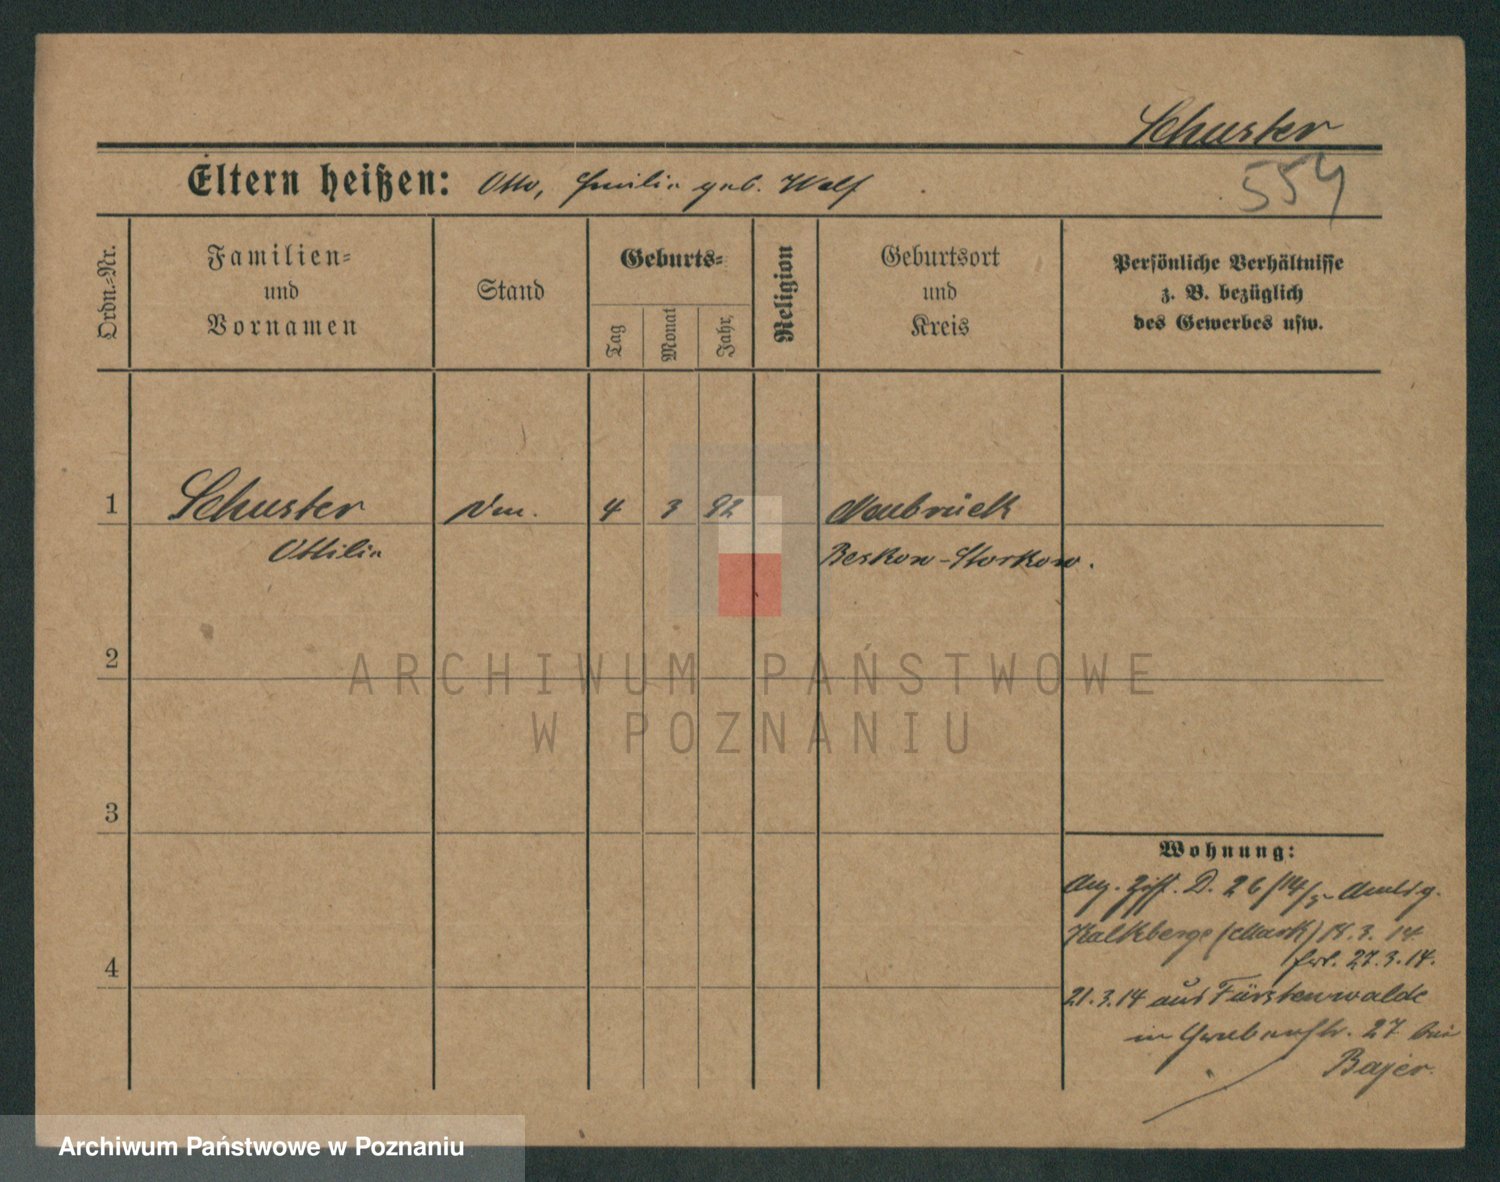 Schuster
554
Eltern heißen: Otto, Emilie geb. Wolf
Ordn.-Nr.
Familien-
und
Vornamen
Stand
Geburts-
Tag
Monat
Jahr,
Religion
Geburtsort
und
Kreis
Persönliche Verhältnisse
z. B. bezüglich
des Gewerbes usw.
1 Schuster 4 3 92 Neubrück
Ottilie Beskow-Storkow.
2
ARCHIWUM PAŃSTWOWE
W POZNANIU
3
Wohnung:
D. 26/14/5
Kalkberge (Mark) 18.3.14
27.3.14.
4
21.3.14 aus Fürstenwalde
in Grabenstr. 27 bei
Bajer.
Archiwum Państwowe w Poznaniu